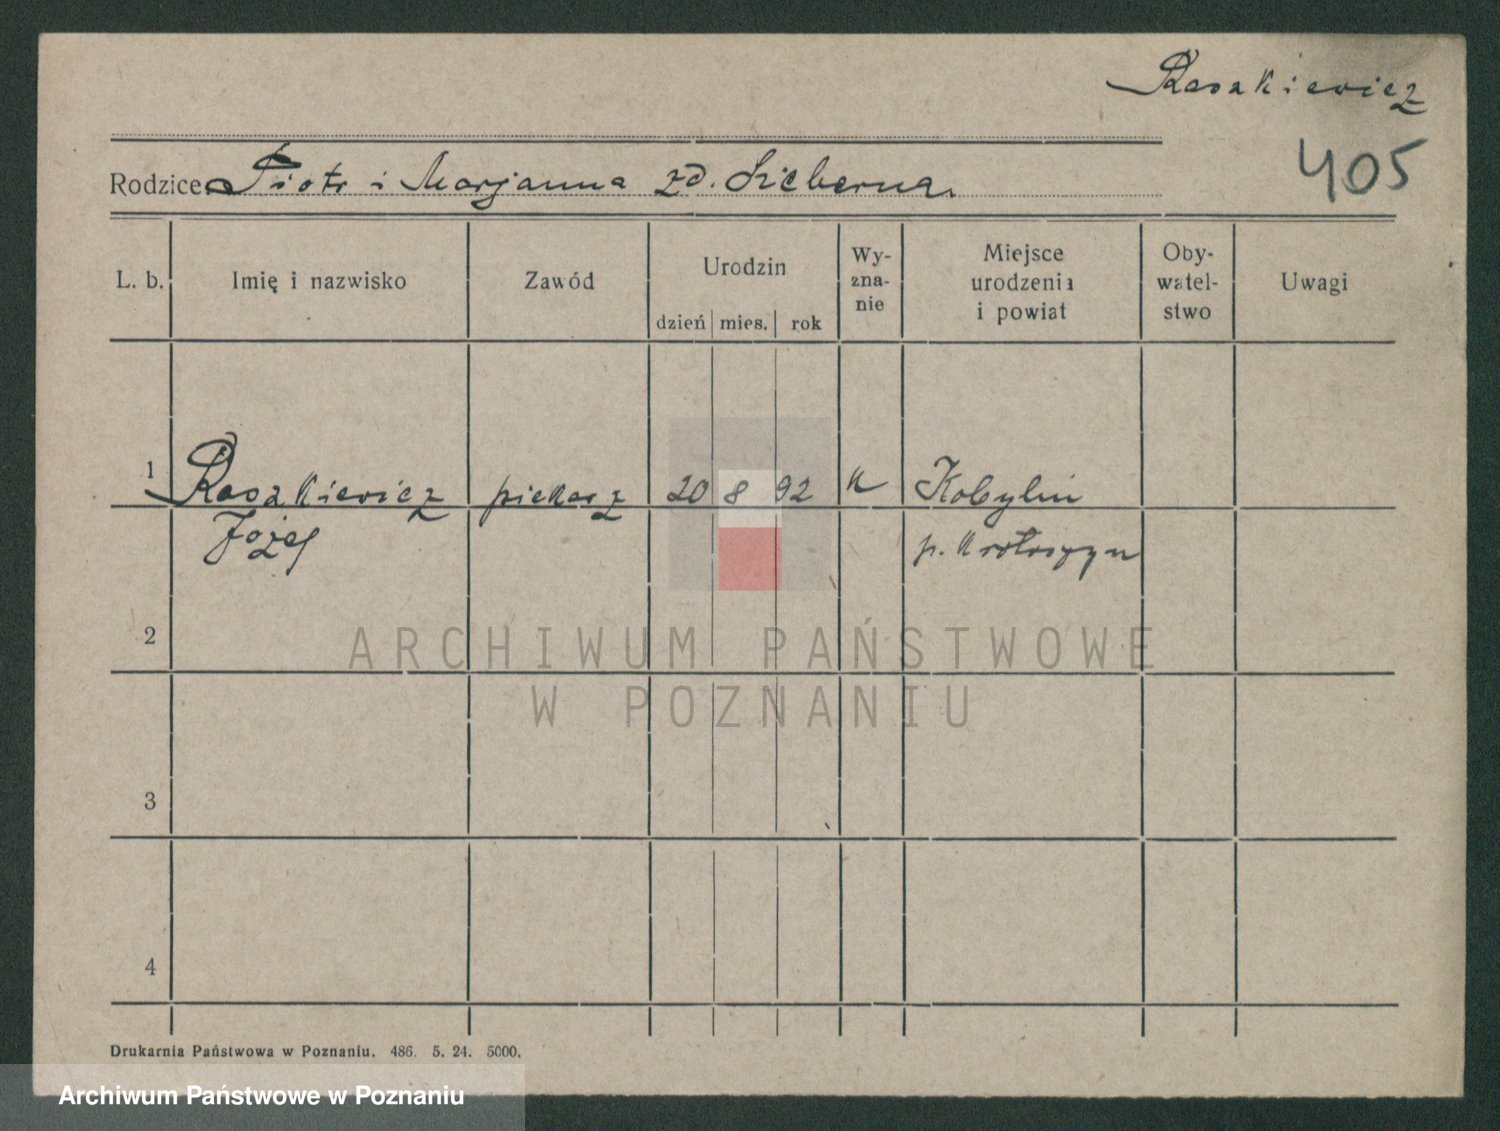 Raszkiewicz
405
Rodzice Piotr i Marjanna zd.
L. b. Imię i nazwisko Zawód Urodzin dzień mies. rok Wy-zna-nie Miejsce urodzenia i powiat Oby-watel-stwo Uwagi
1 Raszkiewicz piekarz 20 8 92 K Kobylin
Józef p. Krotoszyn
2
ARCHIWUM PAŃSTWOWE
W POZNANIU
3
4
Drukarnia Państwowa w Poznaniu. 486. 5. 24. 5000.
Archiwum Państwowe w Poznaniu